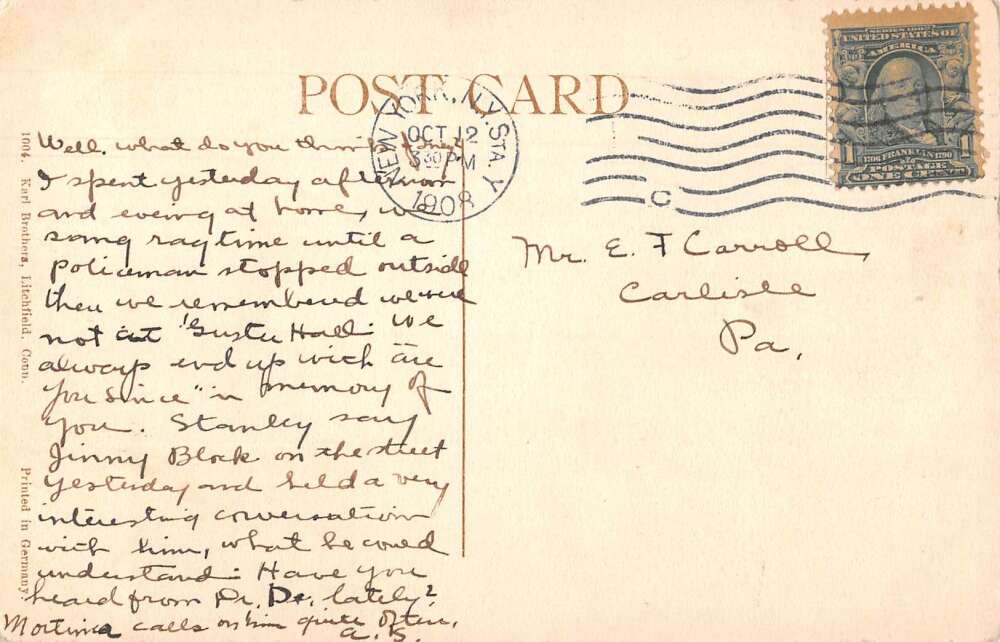 POST CARD
NEW YORK, N.Y. STA. Y
OCT 12
5 30 PM
1908
C
SERIES 1902
UNITED STATES OF
AMERICA
1 1706 FRANKLIN 1790 1
POSTAGE
ONE CENT
1004. Karl Brothers, Litchfield, Conn.
Printed in Germany.
Well, what do you think
I spent yesterday afternoon
and evening at home, we
sang ragtime until a
Policeman stopped outside
then we remembered we were
not at Hall. We
always end up with "are
you Since" in memory of
you. Stanley saw
Jimmy Black on the street
yesterday and held a very
interesting conversation
with him, what he could
understand. Have you
heard from lately?
calls on him quite often.
Mr. E. F Carroll,
Carlisle
Pa.